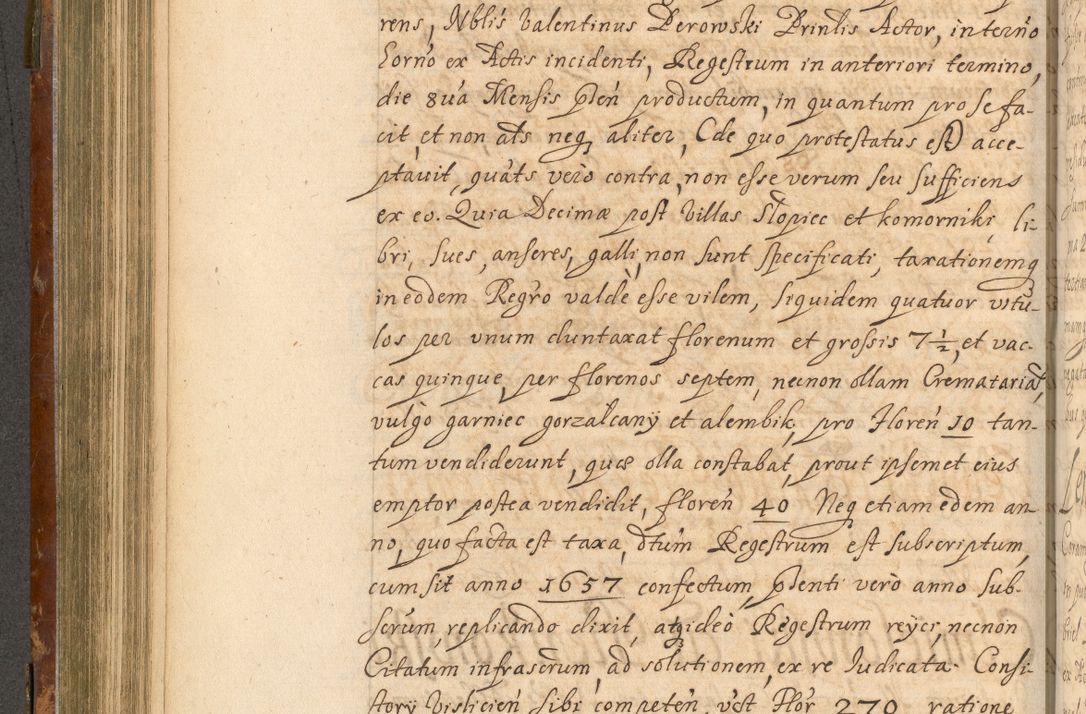 rens, Nblis Valentinus Perowski Prinlis Actor, in term̃o
Eorño ex Actis incidenti, Regestrum in anteriori termino,
die 8uá Mensis p̃leń productum, in quantum pro se fa-
cit, et non ats neq aliter, (de quo protestatus est) acce-
ptauit, quáts vero contra, non esse verum seu sufficiens
ex eo. Quia Decimæ post Villas Słopiec et komorniki, li-
bri, sues, anseres, galli, non sunt specificati, taxationemq
in eodem Reg̃ro valdè esse vilem, siquidem quatuor vitu-
los per unum duntaxat florenum et grossis 7½, et vac-
cas quinque, per florenos septem, necnon ollam Crematariã,
vulgo garniec gorzałcany et alembik, pro Floreń 10 tan-
tum vendiderunt, quæ olla constabat, prout ipsemet eius
emptor postea vendidit, floreń 40 Neq etiam edem an-
no, quo facta est taxa, dtum Regestrum est subscriptum,
cum sit anno 1657 confectum, p̃lenti verò anno sub-
scrũm, replicando dixit, atq ideo Regestrum reyci, necnon
Citatum infrascrũm, ad solutionem, ex re Iudicata Consi-
story Vislicień sibi competeń, vct Flor 270 ratione